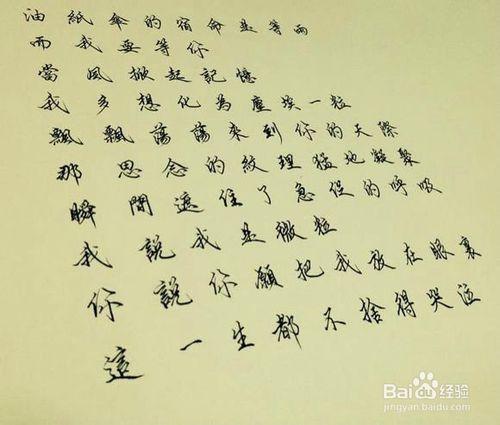 油紙傘的宿命是等雨
而我要等你
當風掀起記憶
我多想化為塵埃一粒
飄飄蕩蕩來到你的天際
那思念的紋理猛地凝聚
瞬間遮住了急促的呼吸
我說我是微粒
你說你願把我放在眼裏
這一生都不捨得哭泣
Baidu经验
jingyan.baidu.com